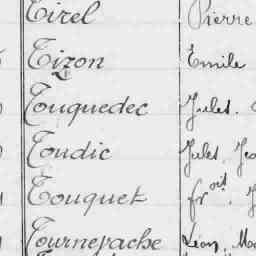 Tirel Pierre
Tizon Emile
Touquedec Jules.
Toudic Jules, Jea
Touquet frois. J
Tournevache Léon, Ma